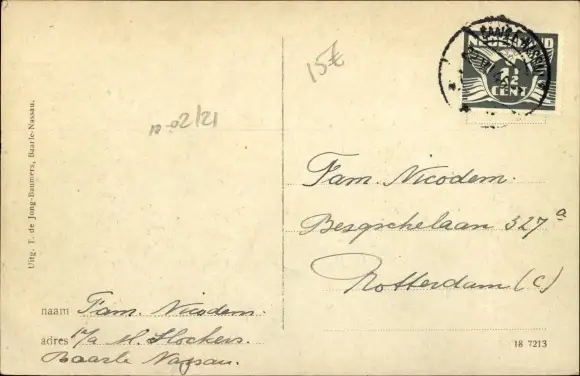 BAARLE-NASSAU
NEDERLAND
1½
CENT
15€
no-02/21
Uitg. T. de Jong-Baumers, Baarle-Nassau.
Fam. Nicodem.
Besgschelaan 327a
Rotterdam (C)
naam Fam. Nicodem.
adres p/a M. Hockers.
Baarle Nassau.
18 7213